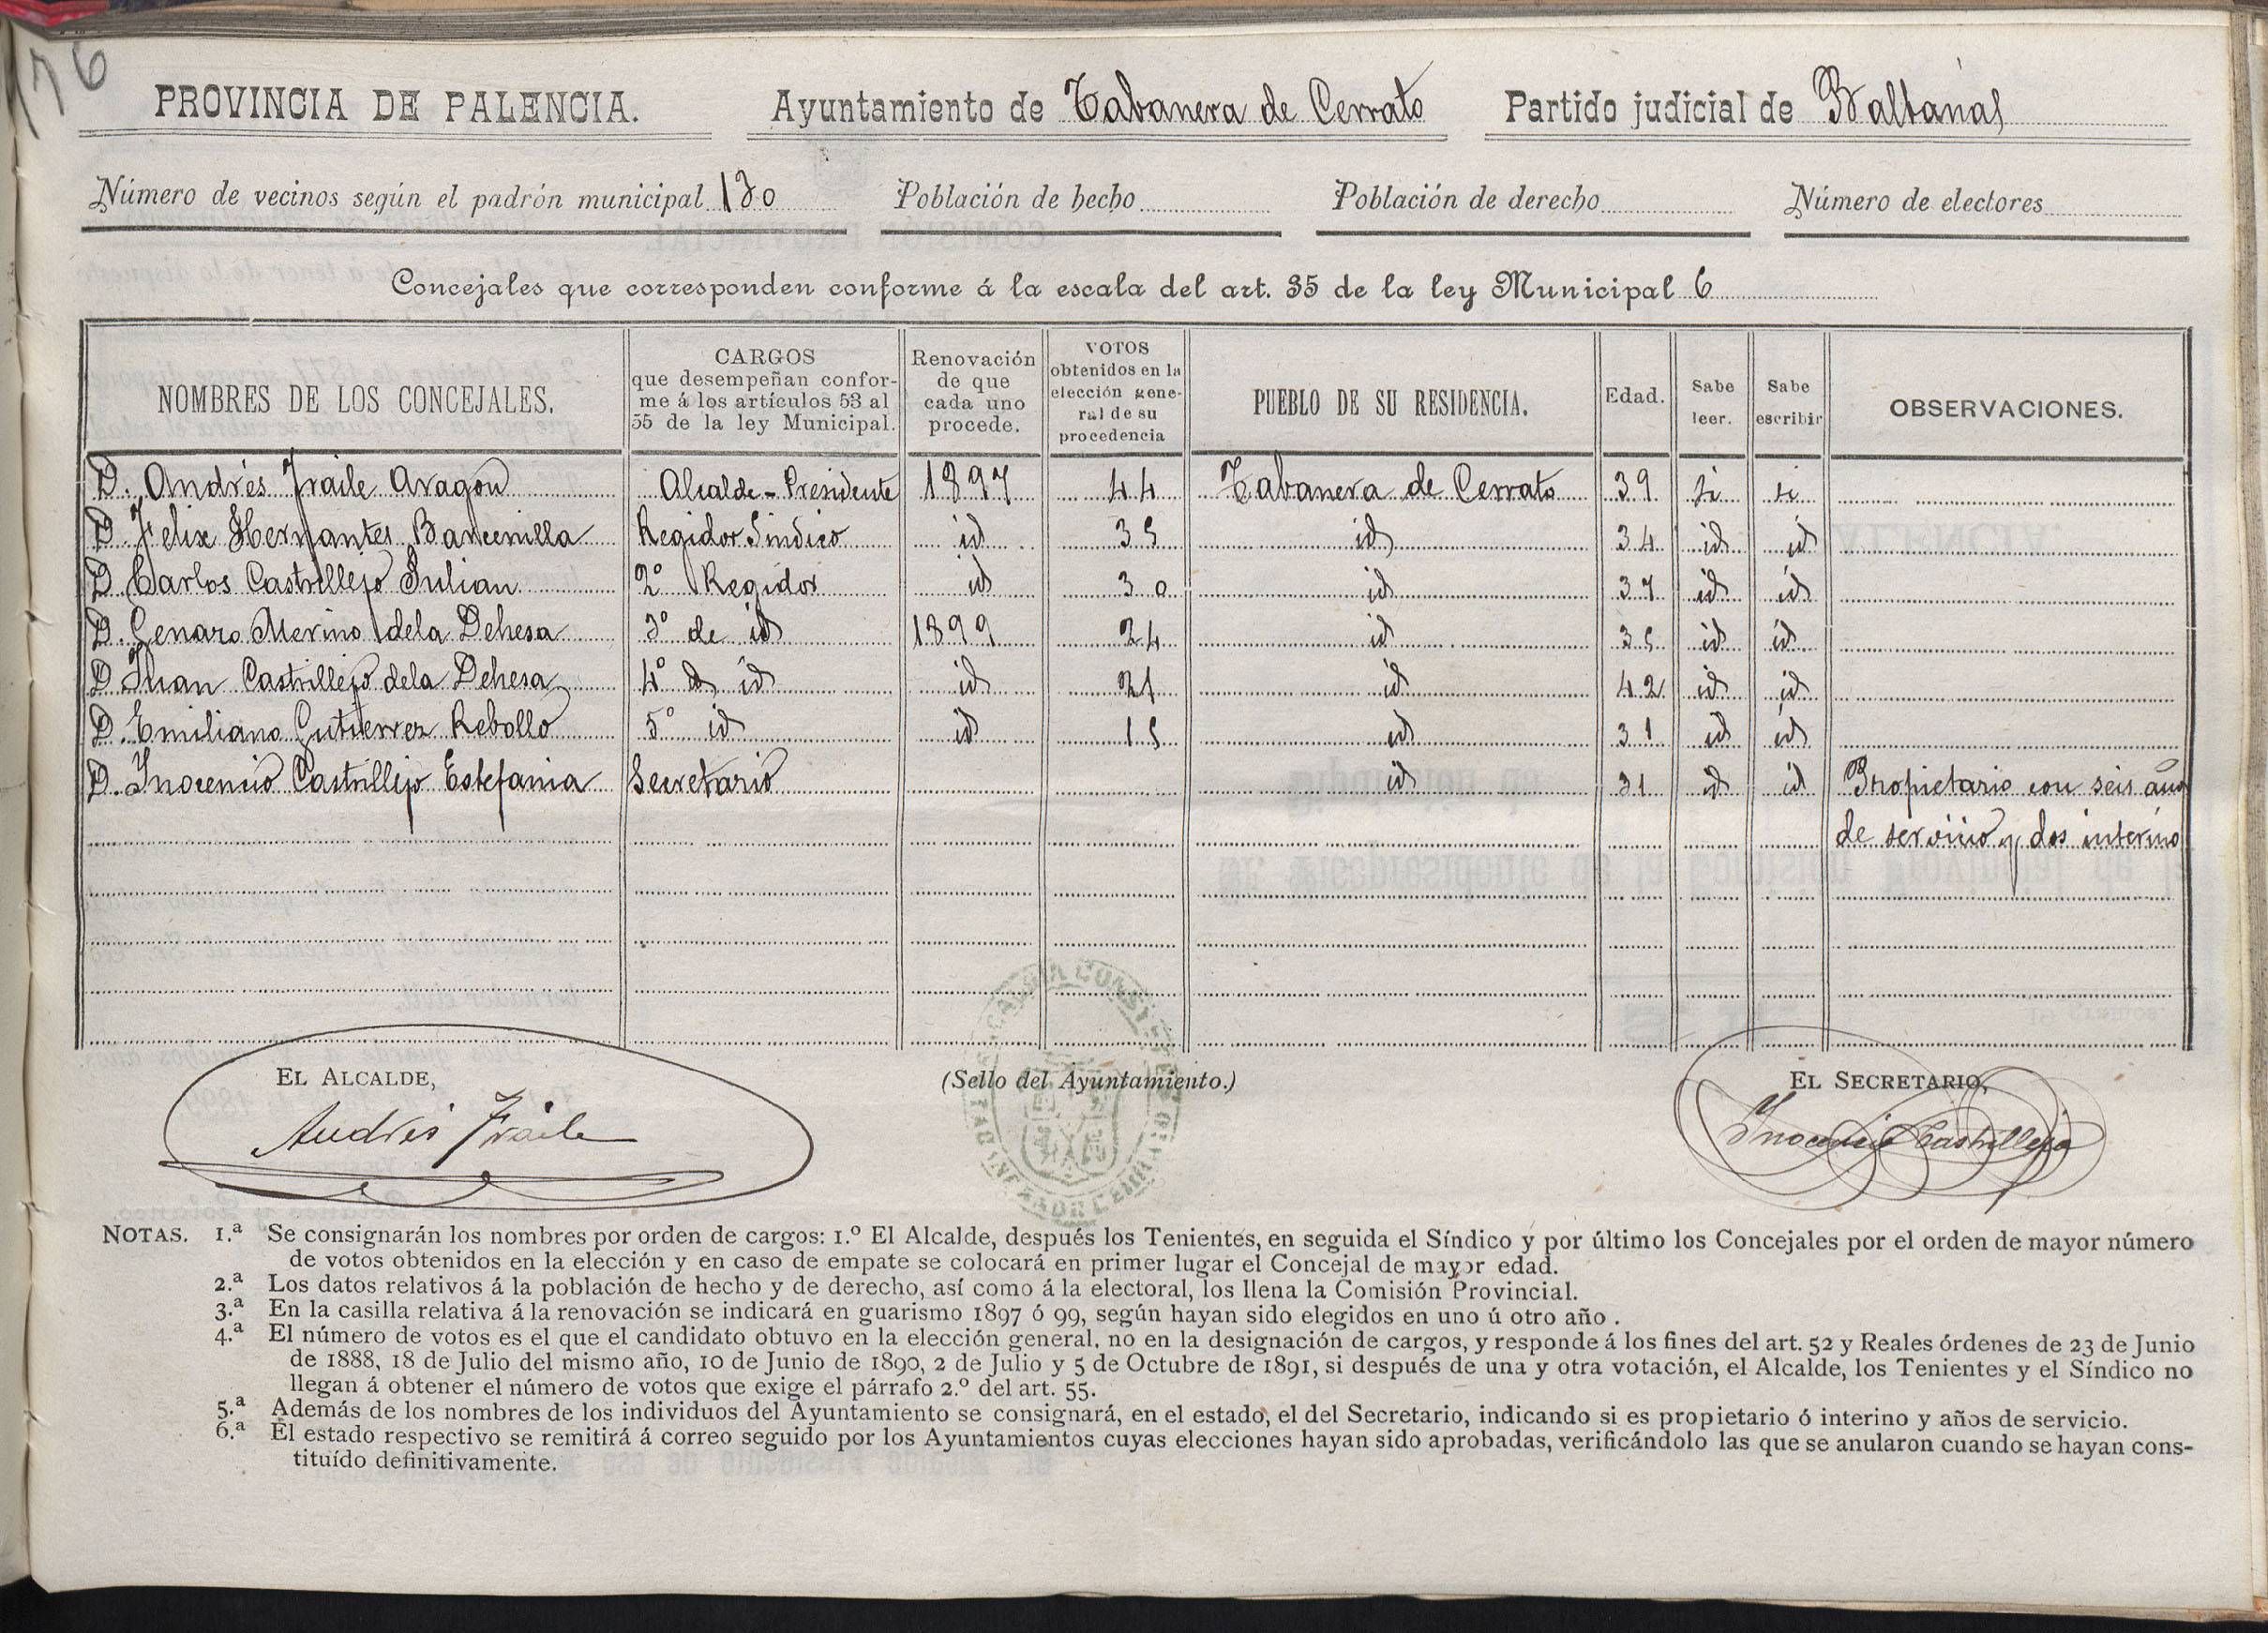 176
PROVINCIA DE PALENCIA. Ayuntamiento de Tabanera de Cerrato Partido judicial de Baltanás
Número de vecinos según el padrón municipal 130 Población de hecho Población de derecho Número de electores
Concejales que corresponden conforme á la escala del art. 35 de la ley Municipal 6
NOMBRES DE LOS CONCEJALES. CARGOS que desempeñan conforme á los artículos 53 al 55 de la ley Municipal. Renovación de que cada uno procede. VOTOS obtenidos en la elección general de su procedencia PUEBLO DE SU RESIDENCIA. Edad. Sabe leer. Sabe escribir OBSERVACIONES.
D. Andrés Fraile Aragon Alcalde-Presidente 1897 44 Tabanera de Cerrato 39 si si
D. Felix Hernantes Barcenilla Regidor Sindico id 35 id 34 id id
D. Carlos Castrillejo Julian 2º Regidor id 30 id 37 id id
D. Genaro Merino dela Dehesa 3º de id 1899 24 id 35 id id
D. Juan Castrillejo dela Dehesa 4º d id id 21 id 42 id id
D. Emiliano Gutierrez Rebollo 5º id id 15 id 31 id id
D. Inocencio Castrillejo Estefania Secretario id 31 id id Propietario con seis años
de servicio y dos interino
EL ALCALDE, (Sello del Ayuntamiento.) EL SECRETARIO,
Andrés Fraile Inocencio Castrillejo
NOTAS. 1.ª Se consignarán los nombres por orden de cargos: 1.º El Alcalde, después los Tenientes, en seguida el Síndico y por último los Concejales por el orden de mayor número
de votos obtenidos en la elección y en caso de empate se colocará en primer lugar el Concejal de mayor edad.
2.ª Los datos relativos á la población de hecho y de derecho, así como á la electoral, los llena la Comisión Provincial.
3.ª En la casilla relativa á la renovación se indicará en guarismo 1897 ó 99, según hayan sido elegidos en uno ú otro año .
4.ª El número de votos es el que el candidato obtuvo en la elección general, no en la designación de cargos, y responde á los fines del art. 52 y Reales órdenes de 23 de Junio
de 1888, 18 de Julio del mismo año, 10 de Junio de 1890, 2 de Julio y 5 de Octubre de 1891, si después de una y otra votación, el Alcalde, los Tenientes y el Síndico no
llegan á obtener el número de votos que exige el párrafo 2.º del art. 55.
5.ª Además de los nombres de los individuos del Ayuntamiento se consignará, en el estado, el del Secretario, indicando si es propietario ó interino y años de servicio.
6.ª El estado respectivo se remitirá á correo seguido por los Ayuntamientos cuyas elecciones hayan sido aprobadas, verificándolo las que se anularon cuando se hayan cons-
tituído definitivamente.